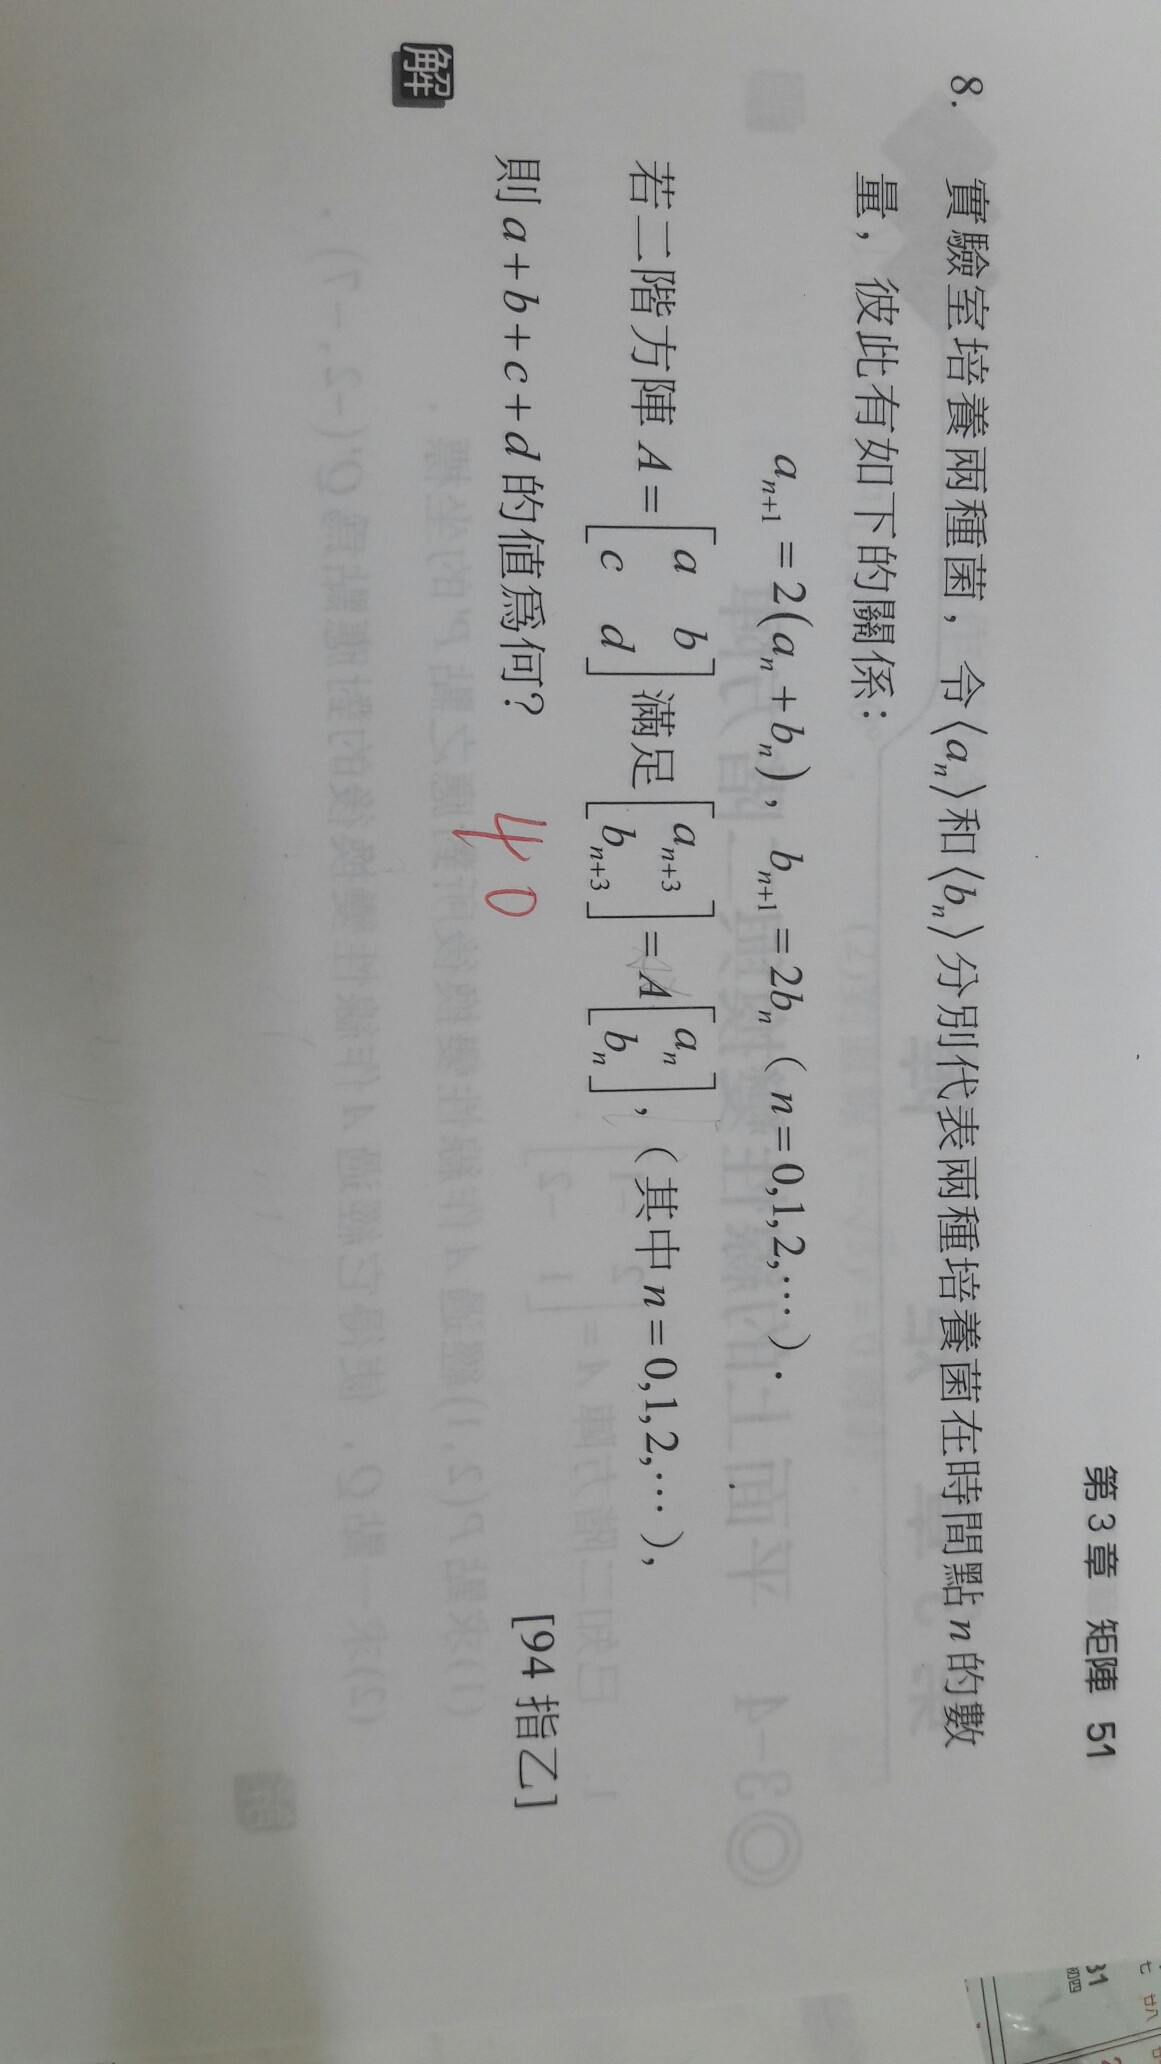 第3章 矩陣 51
8. 實驗室培養兩種菌，令⟨aₙ⟩和⟨bₙ⟩分別代表兩種培養菌在時間點n的數
量，彼此有如下的關係：
aₙ₊₁=2(aₙ+bₙ)，bₙ₊₁=2bₙ（n=0,1,2,⋯）.
若二階方陣A=[a b; c d]滿足[aₙ₊₃; bₙ₊₃]=A[aₙ; bₙ]，（其中n=0,1,2,⋯），
則a+b+c+d的值爲何？ 40 [94指乙]
解
31
初四
七
廿八